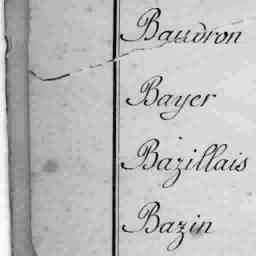 Baudron
Bayer
Bazillais
Bazin